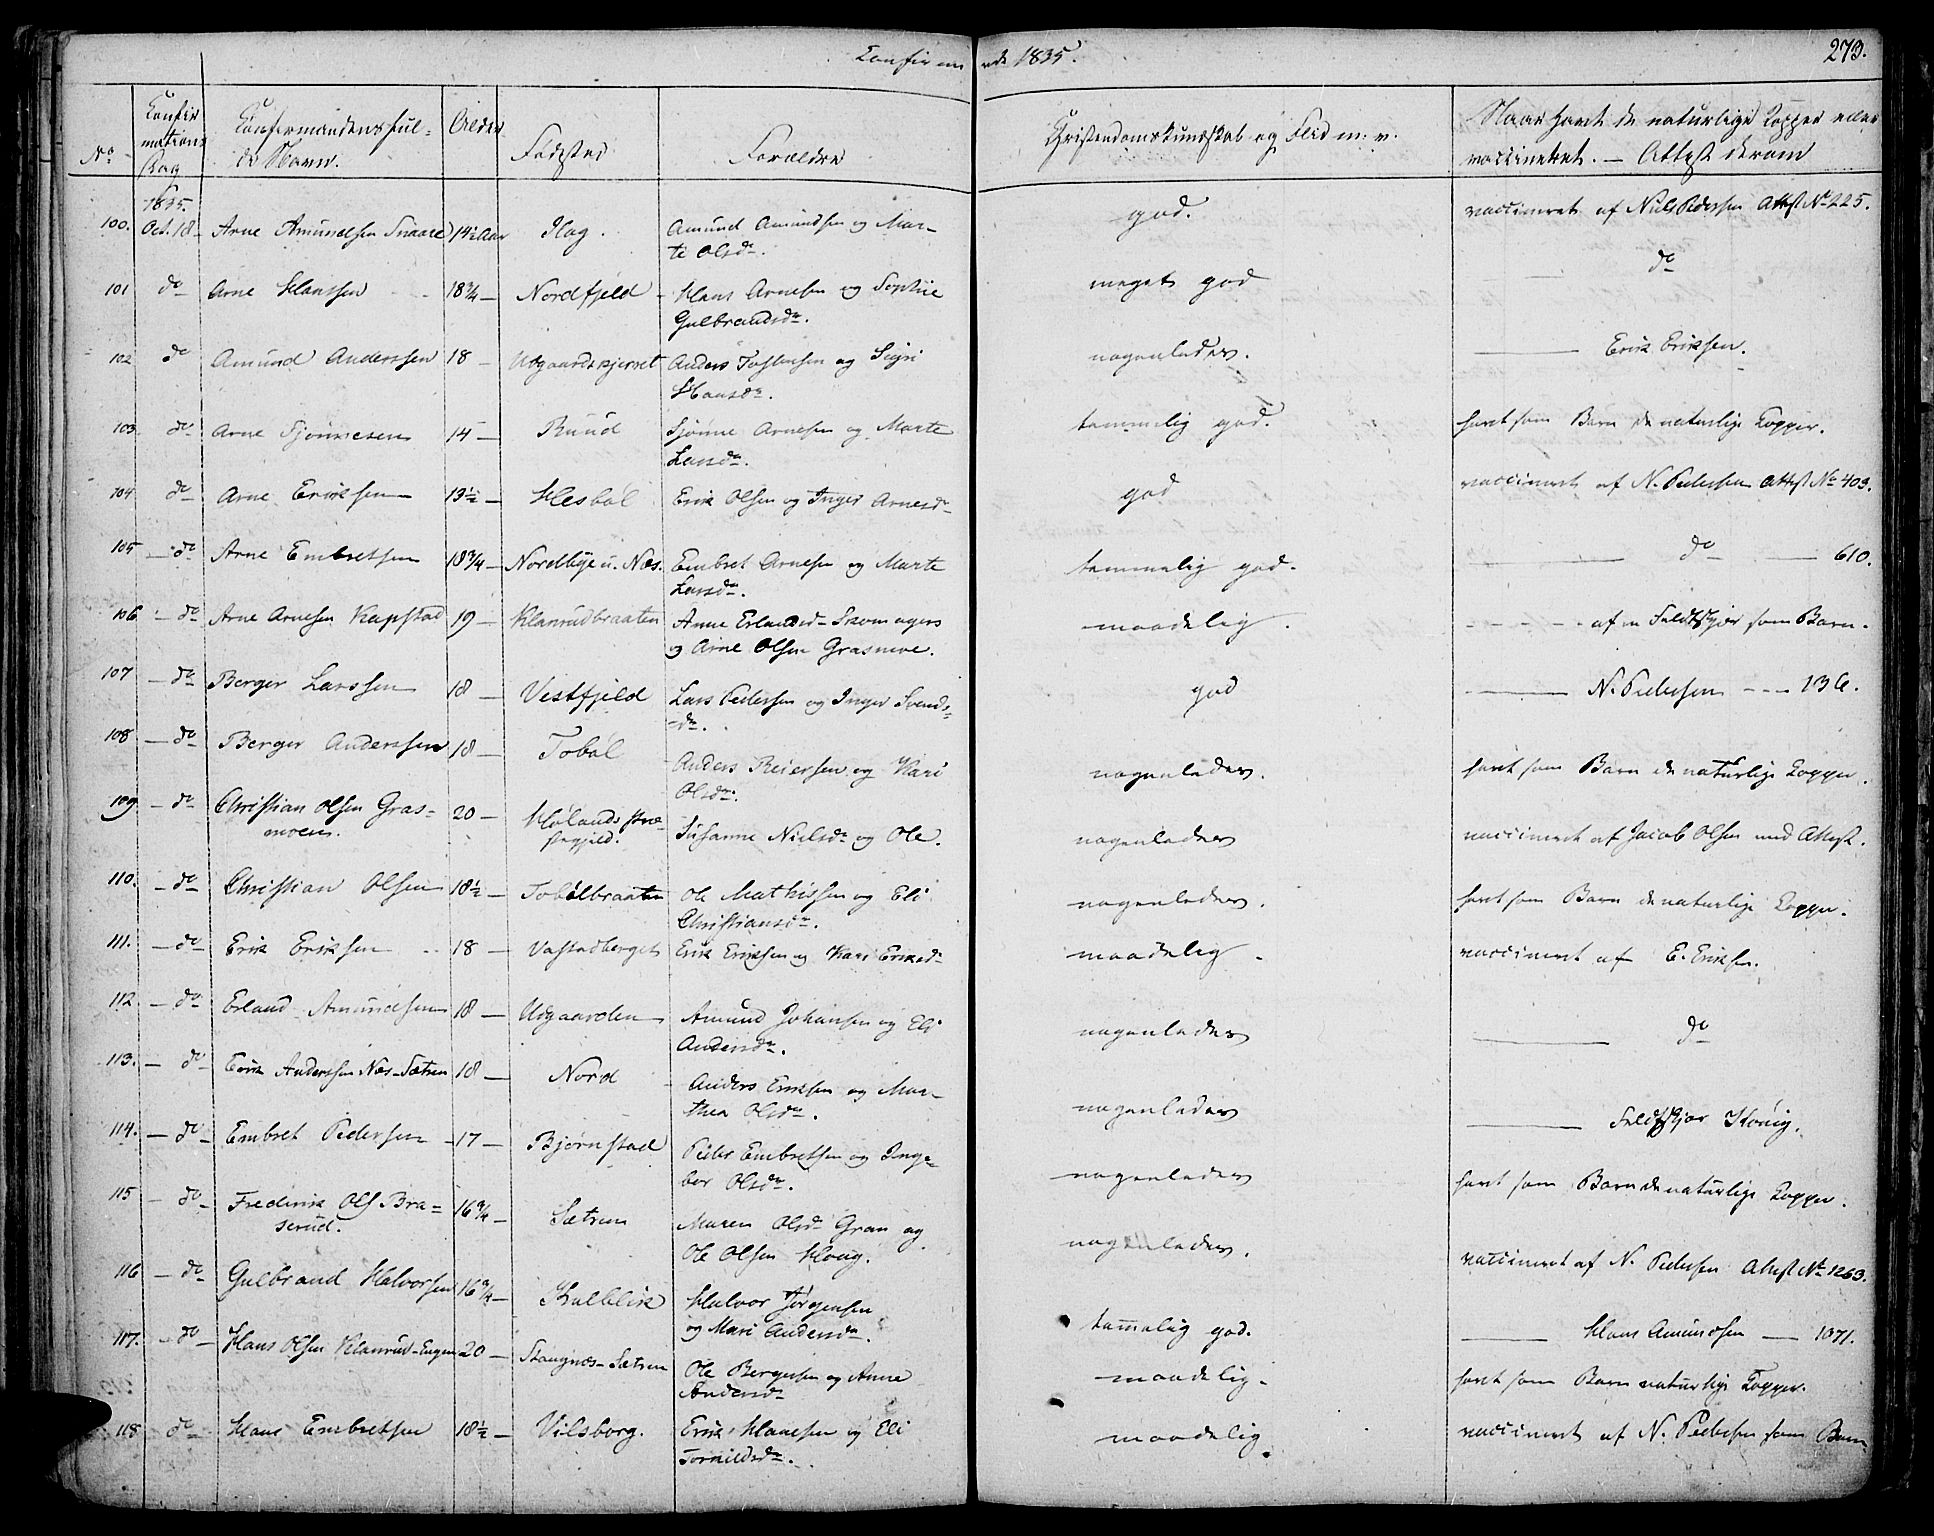 Confirmerede 1835.
273.
No
Confirmations Dag
Confirmandens fulde Navn.
Alder
Fødested
Forældre
Christendomskundskab og Flid m. v.
Naar havt de naturlige Kopper eller vaccineret. — Attest derom
100. 1835. Oct. 18 Arne Amundsen Snaare 14½ Aar Hag. Amund Amundsen og Marte Olsdr. god. vaccineret af Niels Pedersen Attest No 225.
101 do Arne Hanssen 18¾ — Nordfjeld Hans Arnesen og Sophie Gulbrandsdr. meget god — do
102 do Amund Anderssen 18 — Udgaardskjernet Anders Tostensen og Sigri Hansdr. nogenledes. — Erik Eriksen.
103 do Arne Sjønnesen 14 — Ruud Sjønne Arnesen og Marte Larsdr. temmelig god. havt som Barn de naturlige Kopper.
104 do Arne Eriksen 13½ — Hesbøl Erik Olsen og Inger Arnesdr god vaccineret af N. Pedersen Attest No 403.
105 — do Arne Embretsen 18¾ — Nordbye u. Næs. Embret Arnesen og Marte Larsdr. temmelig god. — do — 610.
106 — do Arne Arnesen Kapstad 19 — Klanrudbraaten Anne Erlandsd Skomagers og Arne Olsen Grasmoe. maadelig. af en Feldtskjær som Barn.
107 — do Berger Larssen 18 — Vestfjeld Lars Pedersen og Inger Svendsdr. god — N. Pedersen — 136.
108 — do Berger Anderssen 18 — Tobøl Anders Reiersen og Kari Olsdr. nogenledes. havt som Barn de naturlige Kopper.
109 — do Christian Olsen Grasmoen. 20 — Hølands Præstegjeld. Susanne Nielsdr og Ole. nogenledes vaccineret af Jacob Olsen med Attest.
110. — do Christian Olsen 18½ — Tobølbraaten Ole Mathissen og Eli Christiansdr. nogenledes. havt som Barn de naturlige Kopper.
111. — do Erik Eriksen 18 — Vastadberget Erik Eriksen og Kari Eriksdr maadelig. vaccineret af E. Eriksen.
112. — do Erland Amundsen 18 — Udgaarden Amund Johansen og Eli Andersdr. nogenledes — do
113. — do Erik Anderssen Næs-Sætren 18 — Nord Anders Eriksen og Marthea Olsdr. nogenledes — Feldtskjær König.
114. — do Embret Pedersen 17 — Bjørnstad Peder Embretsen og Ingebor Olsdr. nogenledes havt som Barn de naturlige Kopper.
115 — do Frederik Ols. Braserud. 16¾ — Sætren Maren Olsdr Gran og Ole Olsen Houg. nogenledes. vaccineret af N. Pedersen Attest No 1263.
116 — do Gulbrand Halvorsen 16¾ — Kulblik Halvor Jørgensen og Mari Andersdr. temmelig god. — Hans Amundsen — 1071.
117. — do Hans Olsen Klanrud-Eugen 20 — Stangnæs-Sætren Ole Bergersen og Anne Andersdr maadelig. havt som Barn naturlige Kopper.
118 do Hans Embretsen 18½ — Vilsborg. Erik Hansen og Eli Tornildsdr. maadelig. vaccineret af N. Pedersen som Barn